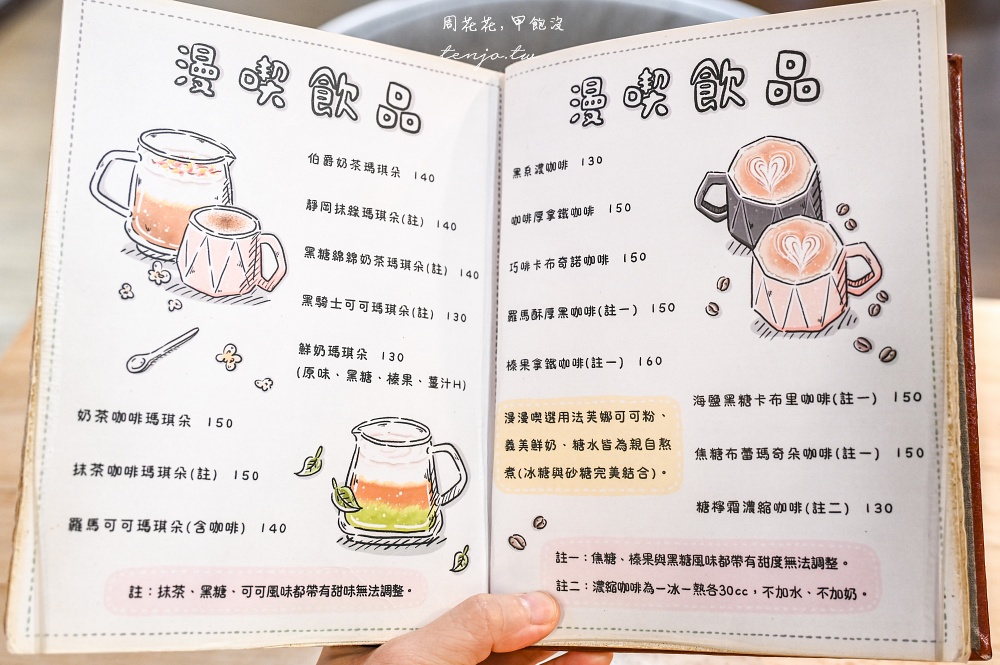 周花花,甲飽沒
tenjo.tw
漫喫飲品
伯爵奶茶瑪琪朵 140
靜岡抹綠瑪琪朵(註) 140
黑糖錦錦奶茶瑪琪朵(註) 140
黑騎士可可瑪琪朵(註) 130
鮮奶瑪琪朵 130
(原味、黑糖、榛果、薑汁H)
奶茶咖啡瑪琪朵 150
抹茶咖啡瑪琪朵(註) 150
羅馬可可瑪琪朵(含咖啡) 140
註:抹茶、黑糖、可可風味都帶有甜味無法調整。
漫喫飲品
黑炙濃咖啡 130
咖啡厚拿鐵咖啡 150
巧啡卡布奇諾咖啡 150
羅馬酥厚黑咖啡(註一) 150
榛果拿鐵咖啡(註一) 160
漫漫喫選用法芙娜可可粉、
義美鮮奶、糖水皆為親自熬
煮(冰糖與砂糖完美結合)。
海鹽黑糖卡布里咖啡(註一) 150
焦糖布蕾瑪奇朵咖啡(註一) 150
糖檸霜濃縮咖啡(註二) 130
註一:焦糖、榛果與黑糖風味都帶有甜度無法調整。
註二:濃縮咖啡為一冰一熱各30cc,不加水、不加奶。